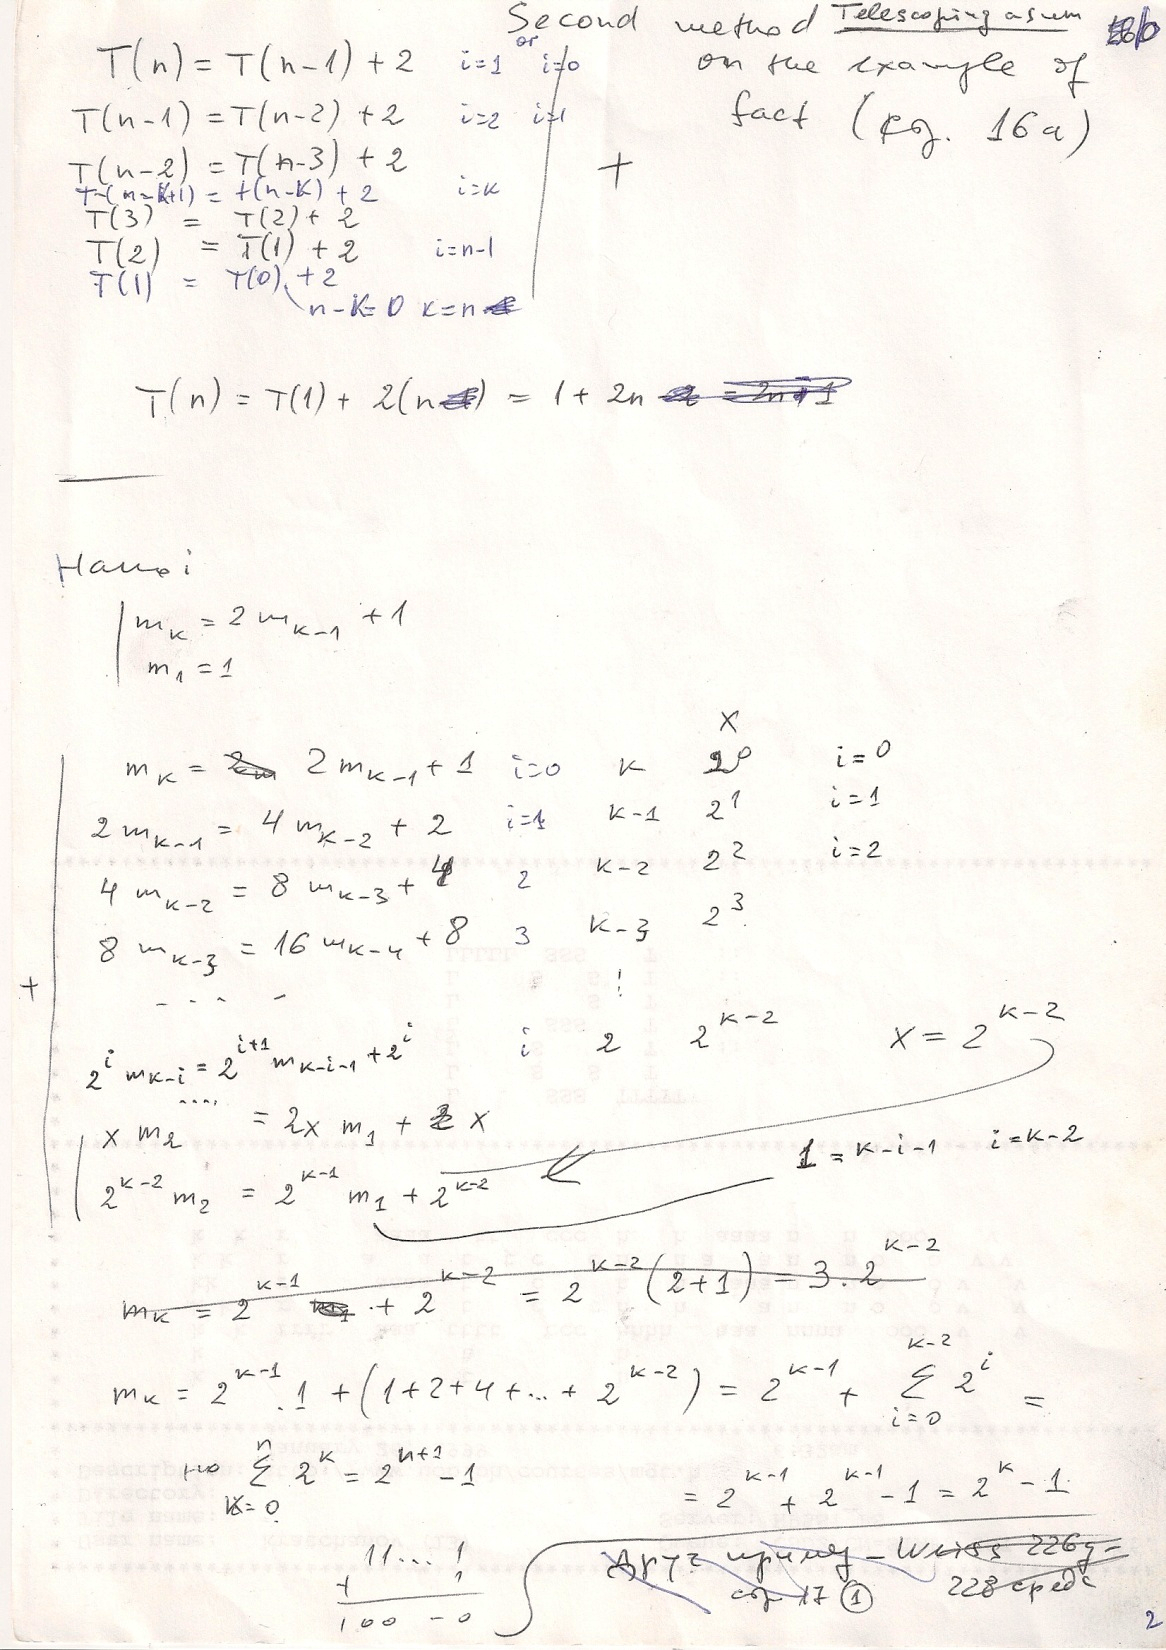 Second method Telescoping a sum
on the example of
fact ( стр. 16a)
T(n) = T(n-1) + 2 i=1 or i=0
T(n-1) = T(n-2) + 2 i=2 i=1
T(n-2) = T(n-3) + 2
+
T(n-k+1) = T(n-k) + 2 i=k
T(3) = T(2) + 2
T(2) = T(1) + 2 i=n-1
T(1) = T(0) + 2
n-k=0 k=n
T(n) = T(1) + 2(n ) = 1 + 2n = 2n+1
Hanoi
m_k = 2 m_{k-1} + 1
m_1 = 1
x
m_k = 2m 2 m_{k-1} + 1 i=0 k 2^0 i=0
2 m_{k-1} = 4 m_{k-2} + 2 i=1 k-1 2^1 i=1
4 m_{k-2} = 8 m_{k-3} + 4 2 k-2 2^2 i=2
8 m_{k-3} = 16 m_{k-4} + 8 3 k-3 2^3
+
....
2^i m_{k-i} = 2^{i+1} m_{k-i-1} + 2^i i 2 2^{k-2} x = 2^{k-2}
....
x m_2 = 2x m_1 + x
1 = k-i-1 i=k-2
2^{k-2} m_2 = 2^{k-1} m_1 + 2^{k-2}
m_k = 2^{k-1} + 2^{k-2} = 2^{k-2} (2+1) = 3.2^{k-2}
m_k = 2^{k-1} .1 + (1+2+4+...+ 2^{k-2}) = 2^{k-1} + ∑_{i=0}^{k-2} 2^i =
но ∑_{k=0}^{n} 2^k = 2^{n+1} -1
= 2^{k-1} + 2^{k-1} -1 = 2^k -1
11... 1
+ 1
100 -0
Друг пример - Weiss 226g-
стр 17 ① 228 среде
2